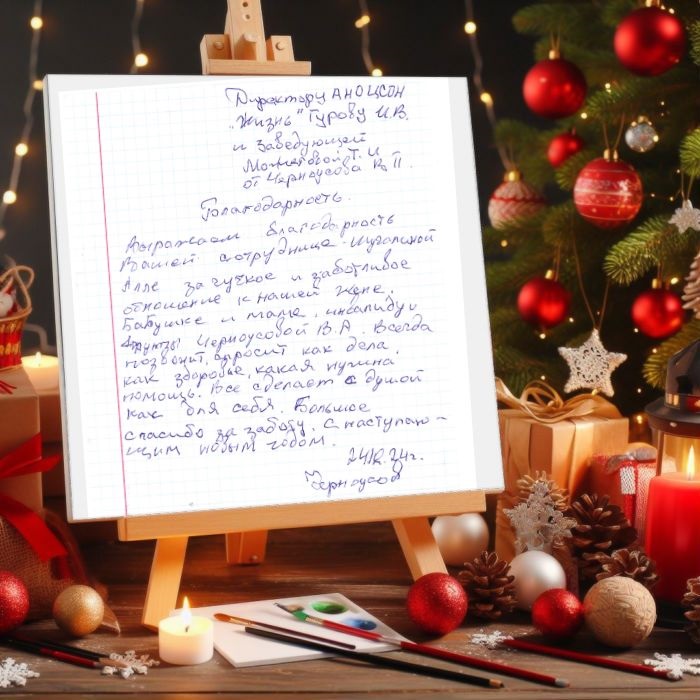 Директору АНОЦСОН
"Жизнь" Гурову И.В.
и Заведующей
Т.И
от Черноусова В.П.
Благодарность.
Выражаем благодарность
Вашей сотруднице
Алле за чуткое и заботливое
отношение к нашей жене,
бабушке и маме, инвалиду I
группы Черноусовой В.А. Всегда
позвонит, спросит как дела,
как здоровье, какая нужна
помощь. Все сделает с душой
как для себя. Большое
спасибо за заботу. С наступаю-
щим новым годом.
24.12.24г.
Черноусов